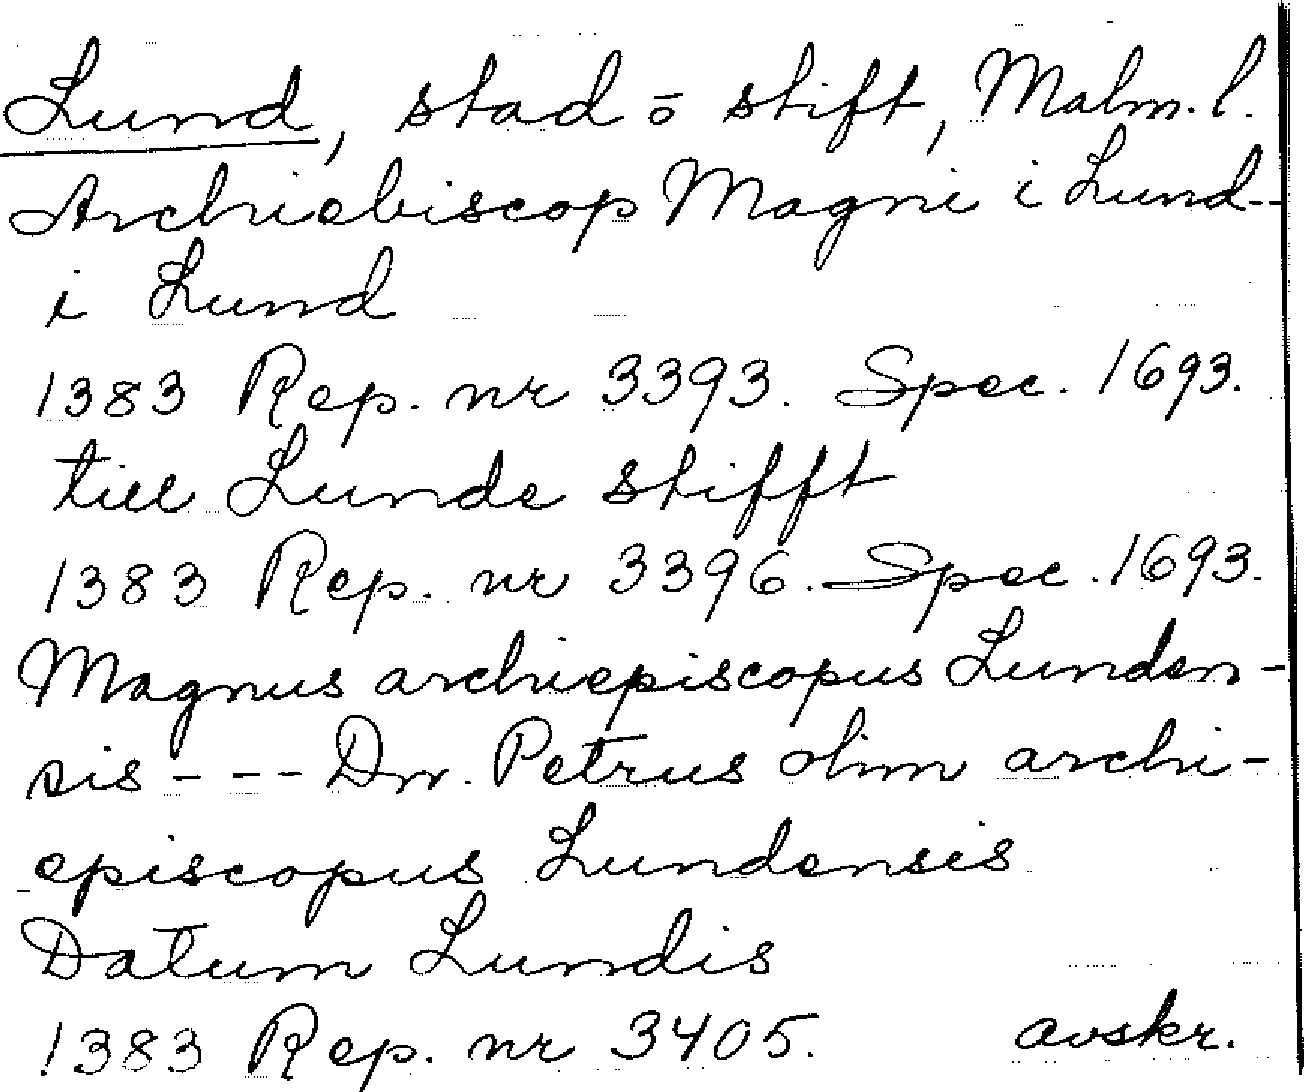 Lund, stad o stift, Malm. l.
Archiebiscop Magni i Lund--
i Lund
1383 Rep. nr 3393. Spec. 1693.
till Lunde stifft
1383 Rep. nr 3396. Spec. 1693.
Magnus archiepiscopus Lunden-
sis - - - Dm. Petrus olim archi-
episcopus Lundensis
Datum Lundis
1383 Rep. nr 3405. avskr.